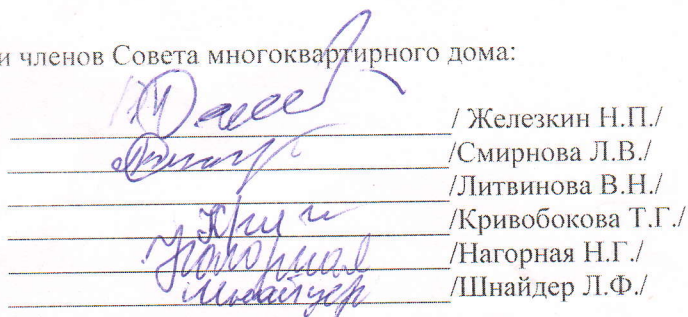 и членов Совета многоквартирного дома:
/ Железкин Н.П./
/Смирнова Л.В./
/Литвинова В.Н./
/Кривобокова Т.Г./
Нагорная /Нагорная Н.Г./
Шнайдер /Шнайдер Л.Ф./